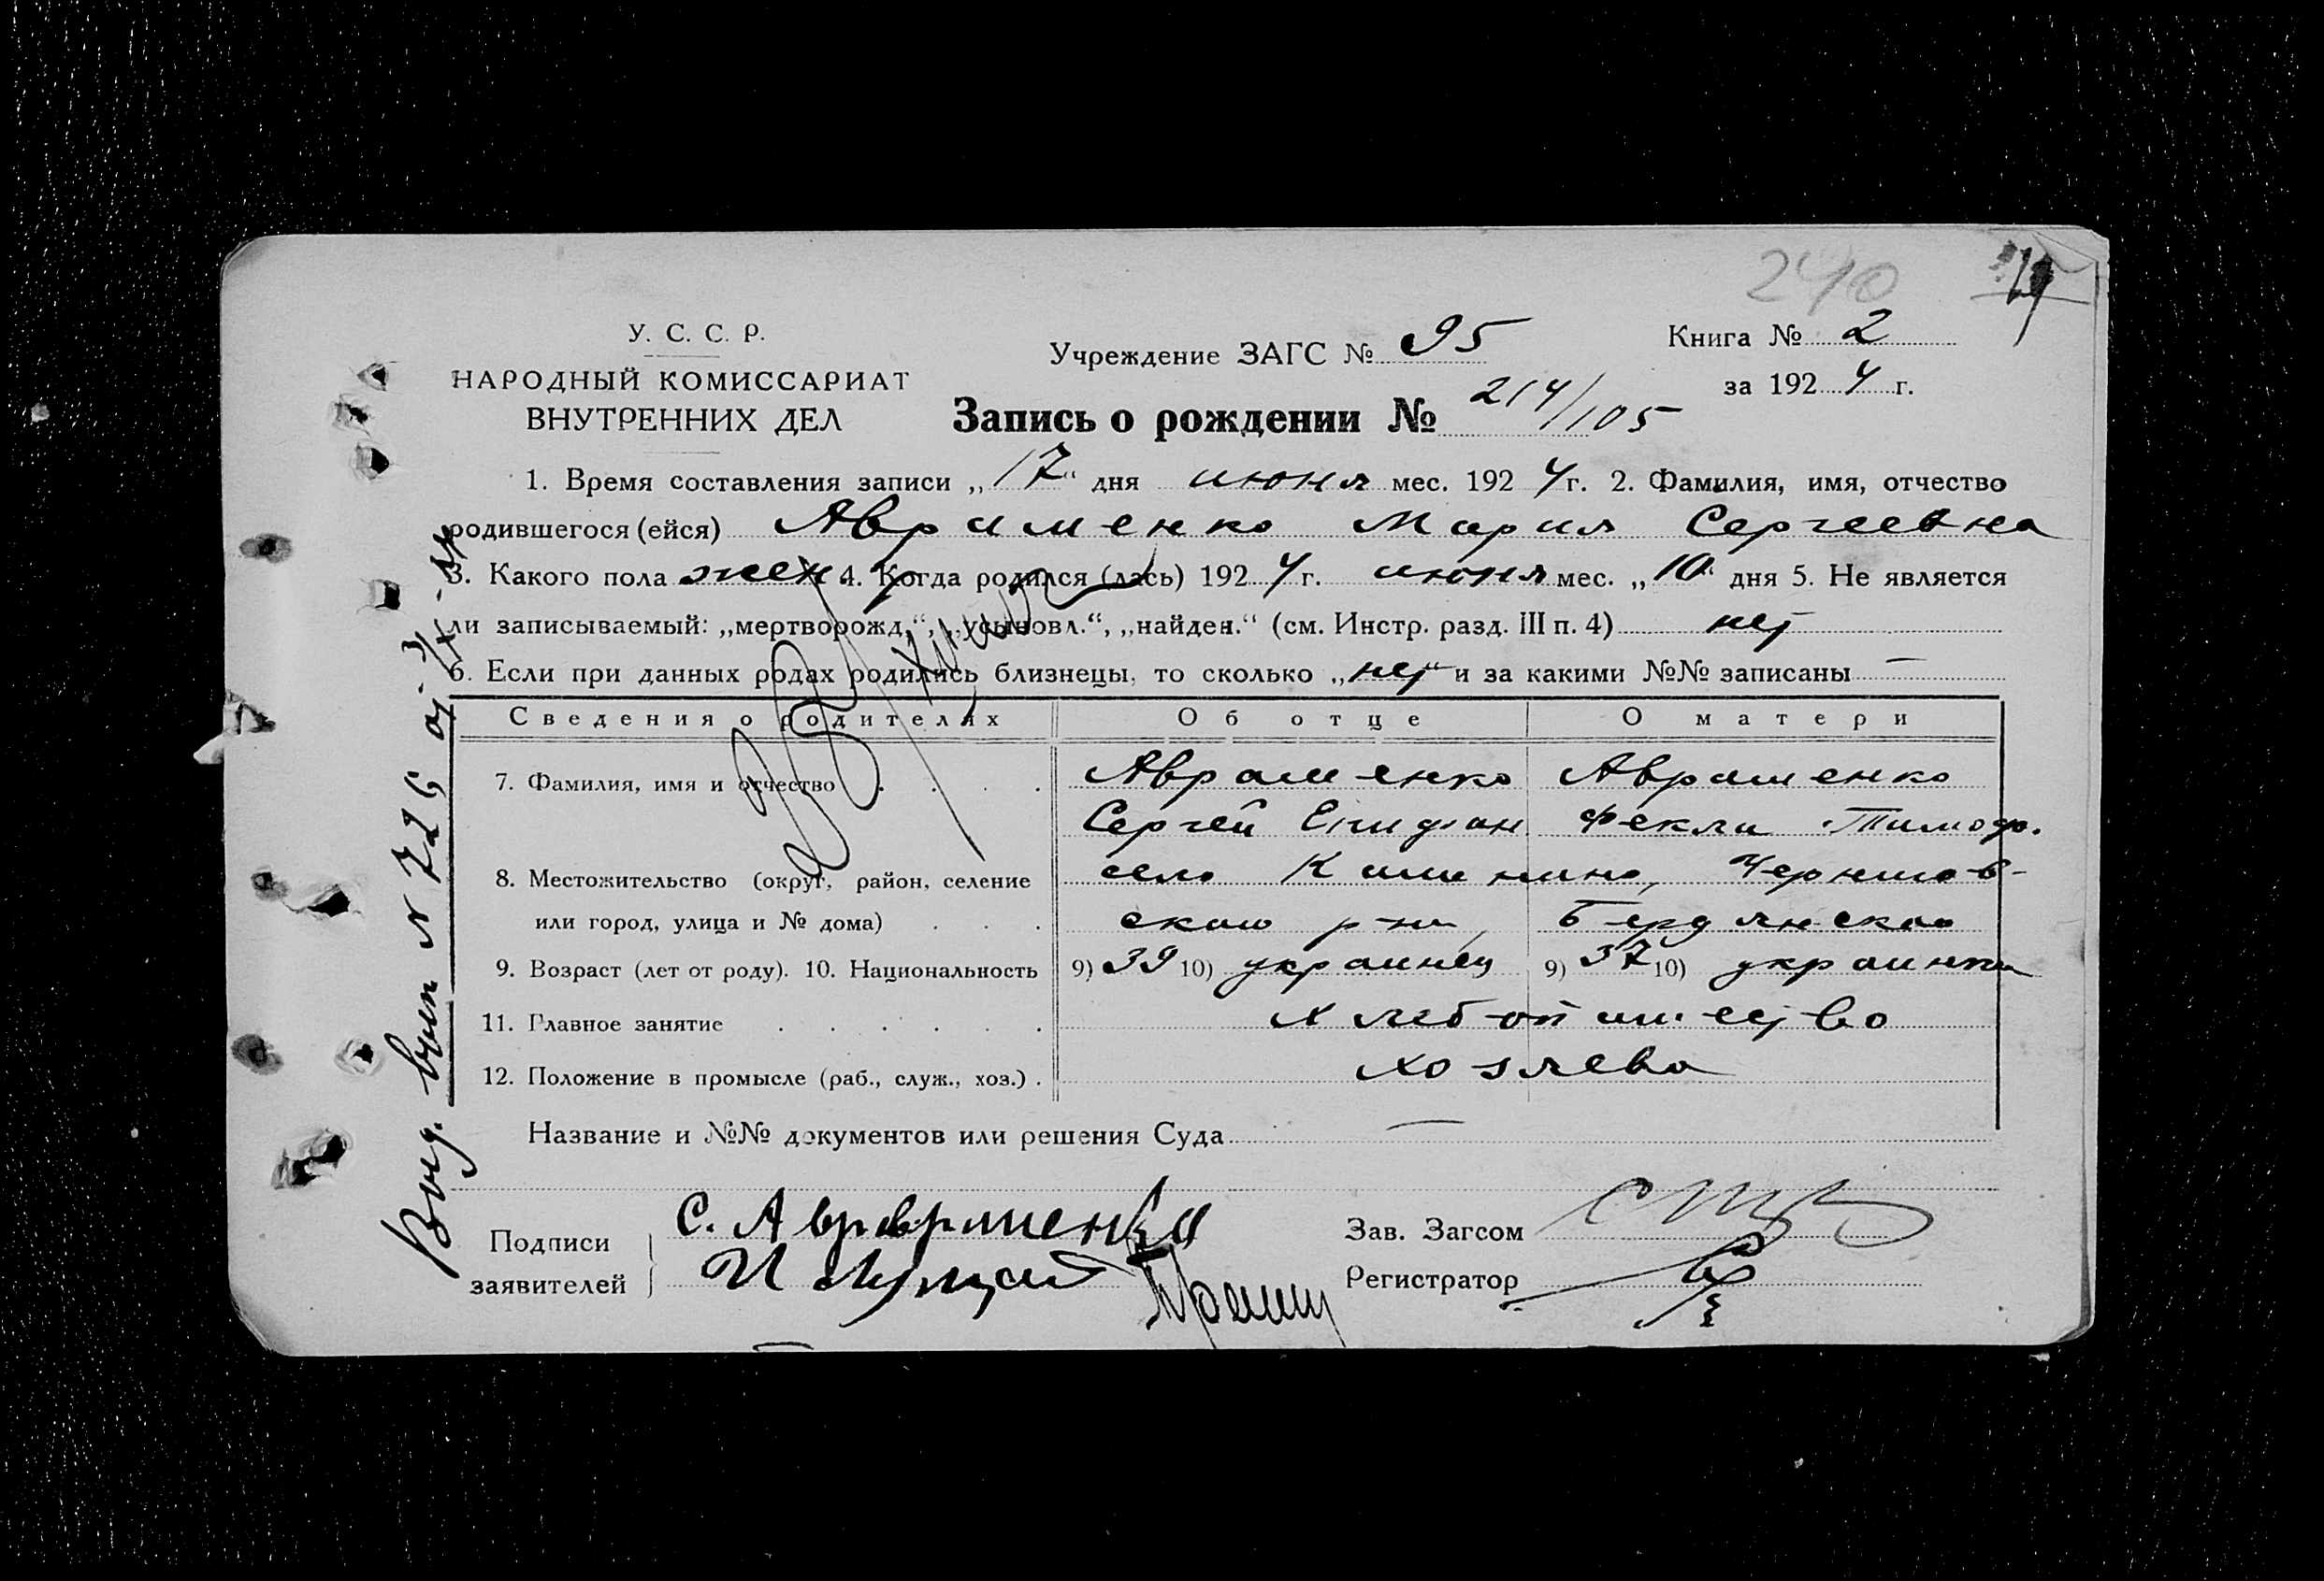 240
У. С. С. Р.
НАРОДНЫЙ КОМИССАРИАТ
ВНУТРЕННИХ ДЕЛ
Учреждение ЗАГС № 95
Книга № 2
за 1924 г.
Запись о рождении № 214/105
1. Время составления записи „17“ дня июня мес. 1924 г. 2. Фамилия, имя, отчество
родившегося (ейся) Авраменко Мария Сергеевна
3. Какого пола жен. 4. Когда родился (лась) 1924 г. июня мес. „10“ дня 5. Не является
ли записываемый: „мертворожд.“, „усыновл.“, „найден.“ (см. Инстр. разд. III п. 4) нет
6. Если при данных родах родились близнецы, то сколько „нет“ и за какими №№ записаны —
Сведения о родителях Об отце О матери
7. Фамилия, имя и отчество Авраменко Авраменко
Сергей Фекла Тимоф.
8. Местожительство (округ, район, селение село
или город, улица и № дома) ского р-на, Бердянского
9. Возраст (лет от роду). 10. Национальность 9) 39 10) украинец 9) 37 10) украинка
11. Главное занятие хлебопашество
12. Положение в промысле (раб., служ., хоз.) хозяева
Название и №№ документов или решения Суда —
Подписи
заявителей
С. Авраменко
Зав. Загсом
Регистратор